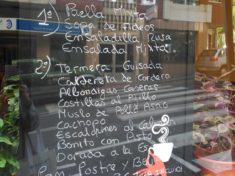 1º) Paella Mixta
Sopa de Fideos
Ensaladilla Rusa
Ensalada Mixta
2º) Ternera Guisada
Caldereta de Cordero
Albondigas Caseras
Costillas al
Muslo de Pollo Asado
Cachopo
Escalopines al
Bonito con
Dorada a la
Pan Postre y